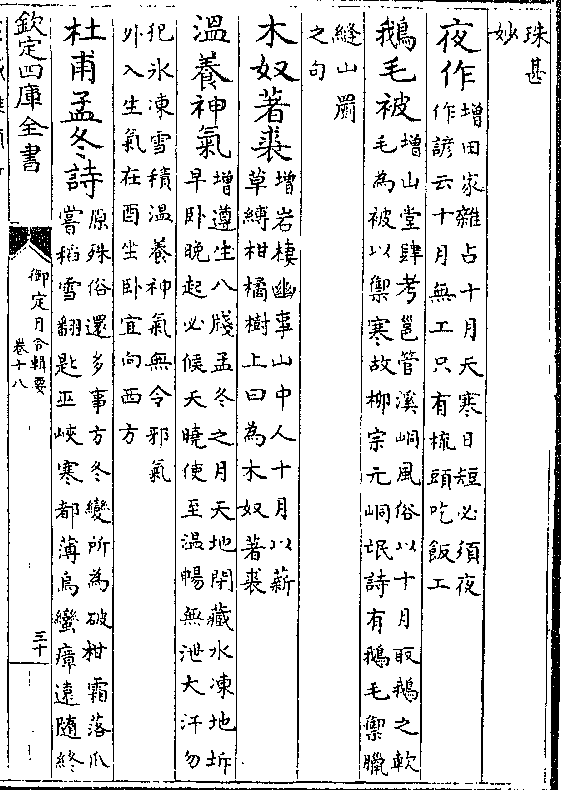 珠甚
妙
夜作增田家雜占十月天寒日短必須夜
作諺云十月無工只有梳頭吃飯工
鵝毛被增山堂肆考邕管溪峒風俗以十月取鵝之軟
毛為被以禦寒故柳宗元峒氓詩有鵝毛禦臘
縫山罽
之句
木奴著裘增岩棲幽事山中人十月以薪
草縛柑橘樹上曰為木奴著裘
溫養神氣增遵生八牋孟冬之月天地閉藏水凍地坼
早卧晚起必候天曉使至溫暢無泄大汗勿
犯氷凍雪積溫養神氣無令邪氣
外入生氣在酉坐卧宜向西方
杜甫孟冬詩原殊俗還多事方冬變所為破柑霜落爪
嘗稻雪翻匙巫峽寒都薄烏蠻瘴遠隨終
欽定四庫全書
御定月令輯要
卷十八
三十